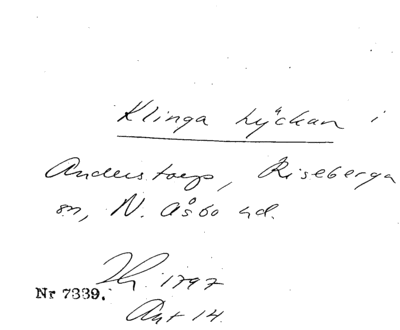 Klinga lyckan i
Anderstorp, Riseberga
sn, N. Åsbo hd.
Th. 1797
Nr 7339.
Akt 14.